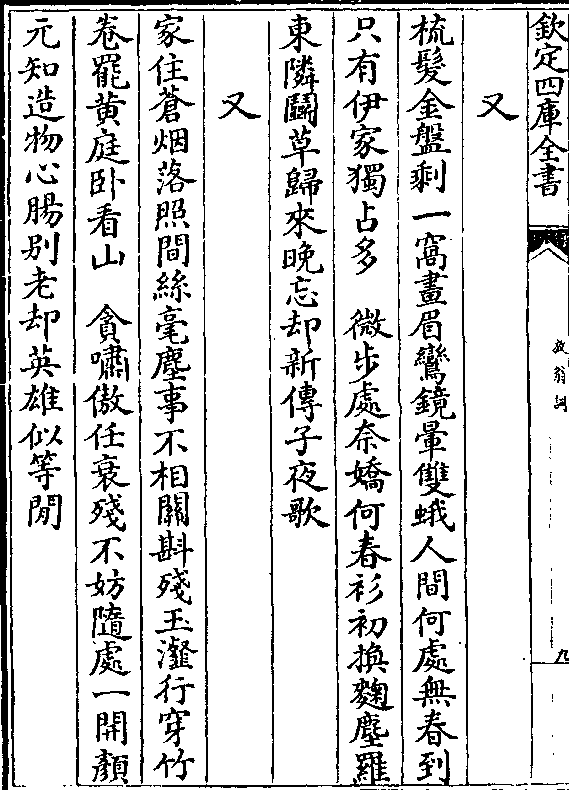 欽定四庫全書
放翁詞
九
又
梳髮金盤剩一窩畫眉鸞鏡暈雙蛾人間何處無春到
只有伊家獨占多　微步處奈嬌何春衫初換麴塵羅
東隣鬭草歸來晚忘却新傳子夜歌
又
家住蒼烟落照間絲毫塵事不相關斟殘玉瀣行穿竹
卷罷黄庭卧看山　貪嘯傲任衰殘不妨隨處一開顔
元知造物心腸别老却英雄似等閒